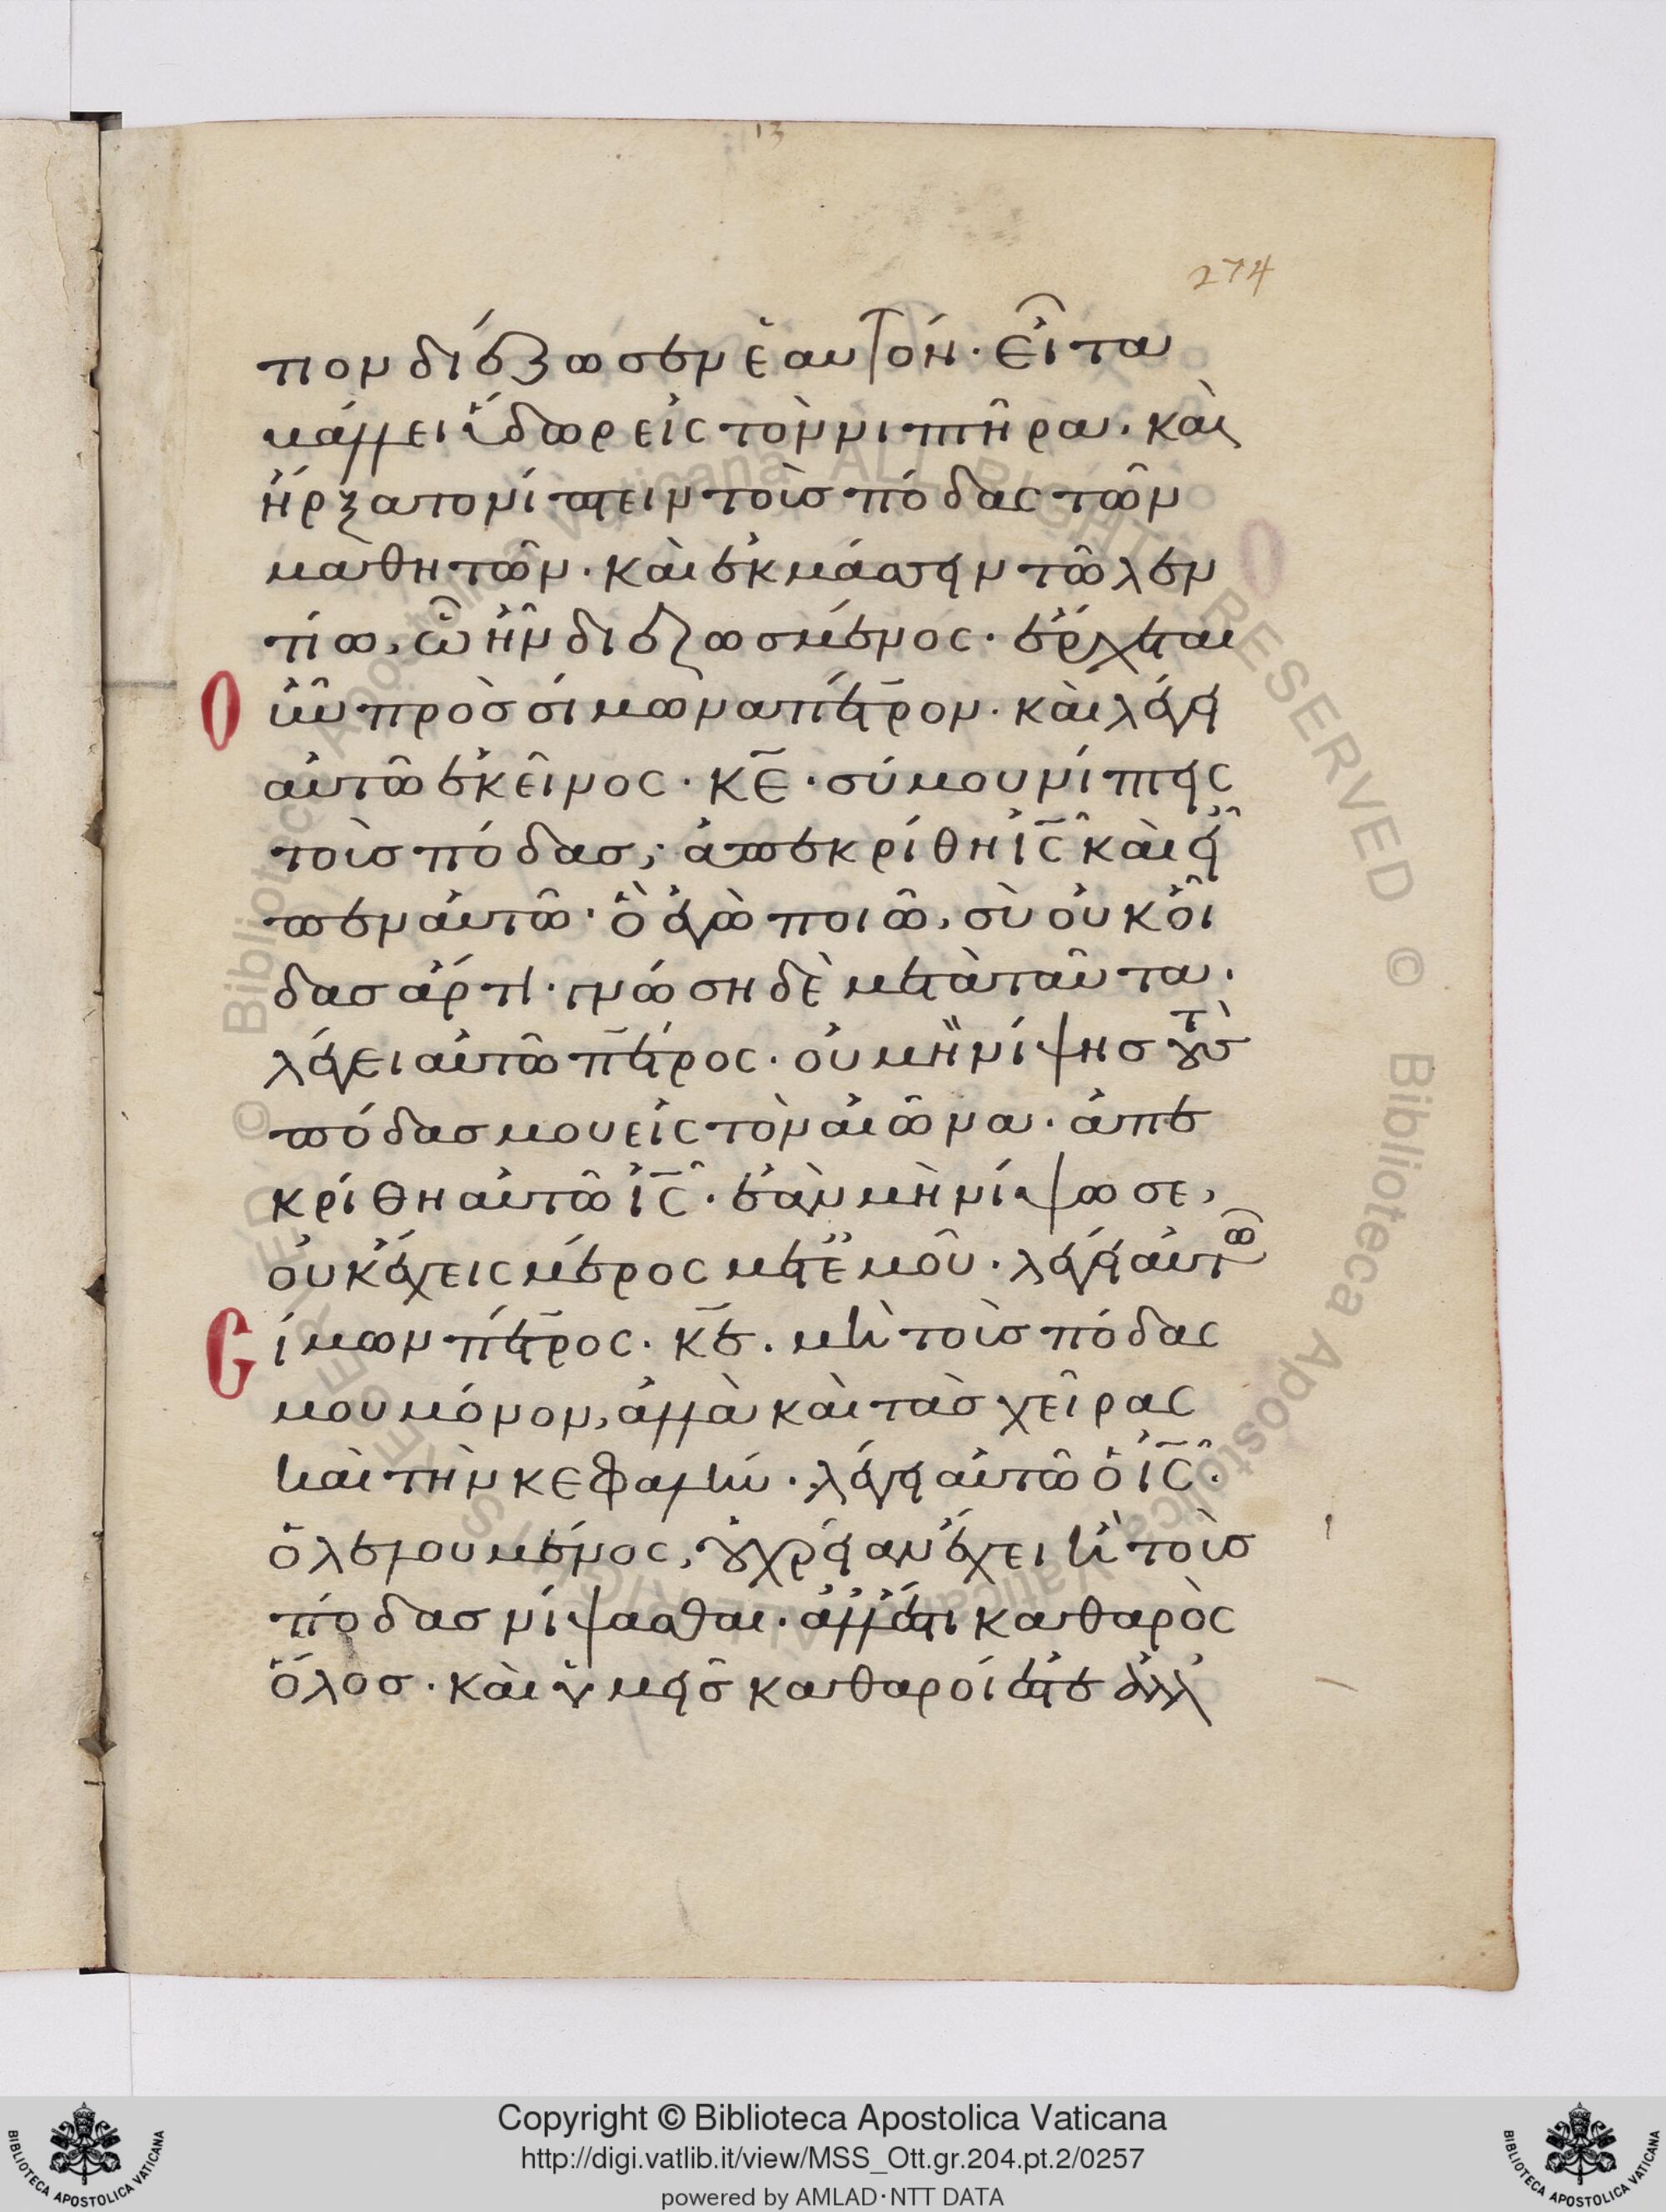 13
274
τιον διέζωσεν ἑαυτόν· εἶτα
βάλλει ὕδωρ εἰς τὸν νιπτῆρα· καὶ
ἤρξατο νίπτειν τοὺς πόδας τῶν
μαθητῶν· καὶ ἐκμάσσειν τῶ λεν
τίω, ὧ ἦν διεζωσμένος· ἔρχεται
οὖν πρὸς σίμωνα πέτρον· καὶ λέγει
αὐτῶ ἐκεῖνος· κε̅· σύ μου νίπτεις
τοὺς πόδας; ἀπεκρίθη ἰς̅ καὶ εἶ
πεν αὐτῶ· ὃ ἐγὼ ποιῶ, σὺ οὐκ οἶ
δας ἄρτι· γνώση δὲ μετὰ ταῦτα·
λέγει αὐτῶ πέτρος· οὐ μὴ νίψης τοὺς
πόδας μου εἰς τὸν αἰῶνα· ἀπε
κρίθη αὐτῶ ἰς̅· ἐὰν μὴ νίψω σε,
οὐκ ἔχεις μέρος μετ ἐμοῦ· λέγει αὐτῶ
Σίμων πέτρος· κε̅· μὴ τοὺς πόδας
μου μόνον, ἀλλὰ καὶ τὰς χεῖρας
καὶ τὴν κεφαλήν· λέγει αὐτῶ ὁ ἰς̅·
ὁ λελουμένος, οὐ χρείαν ἔχει ἢ τοὺς
πόδας νίψασθαι· ἀλλ' ἔστι καθαρὸς
ὅλος· καὶ ὑμεῖς καθαροί ἐστε ἀλλ
Copyright © Biblioteca Apostolica Vaticana
http://digi.vatlib.it/view/MSS_Ott.gr.204.pt.2/0257
powered by AMLAD·NTT DATA
BIBLIOTECA APOSTOLICA VATICANA
BIBLIOTECA APOSTOLICA VATICANA